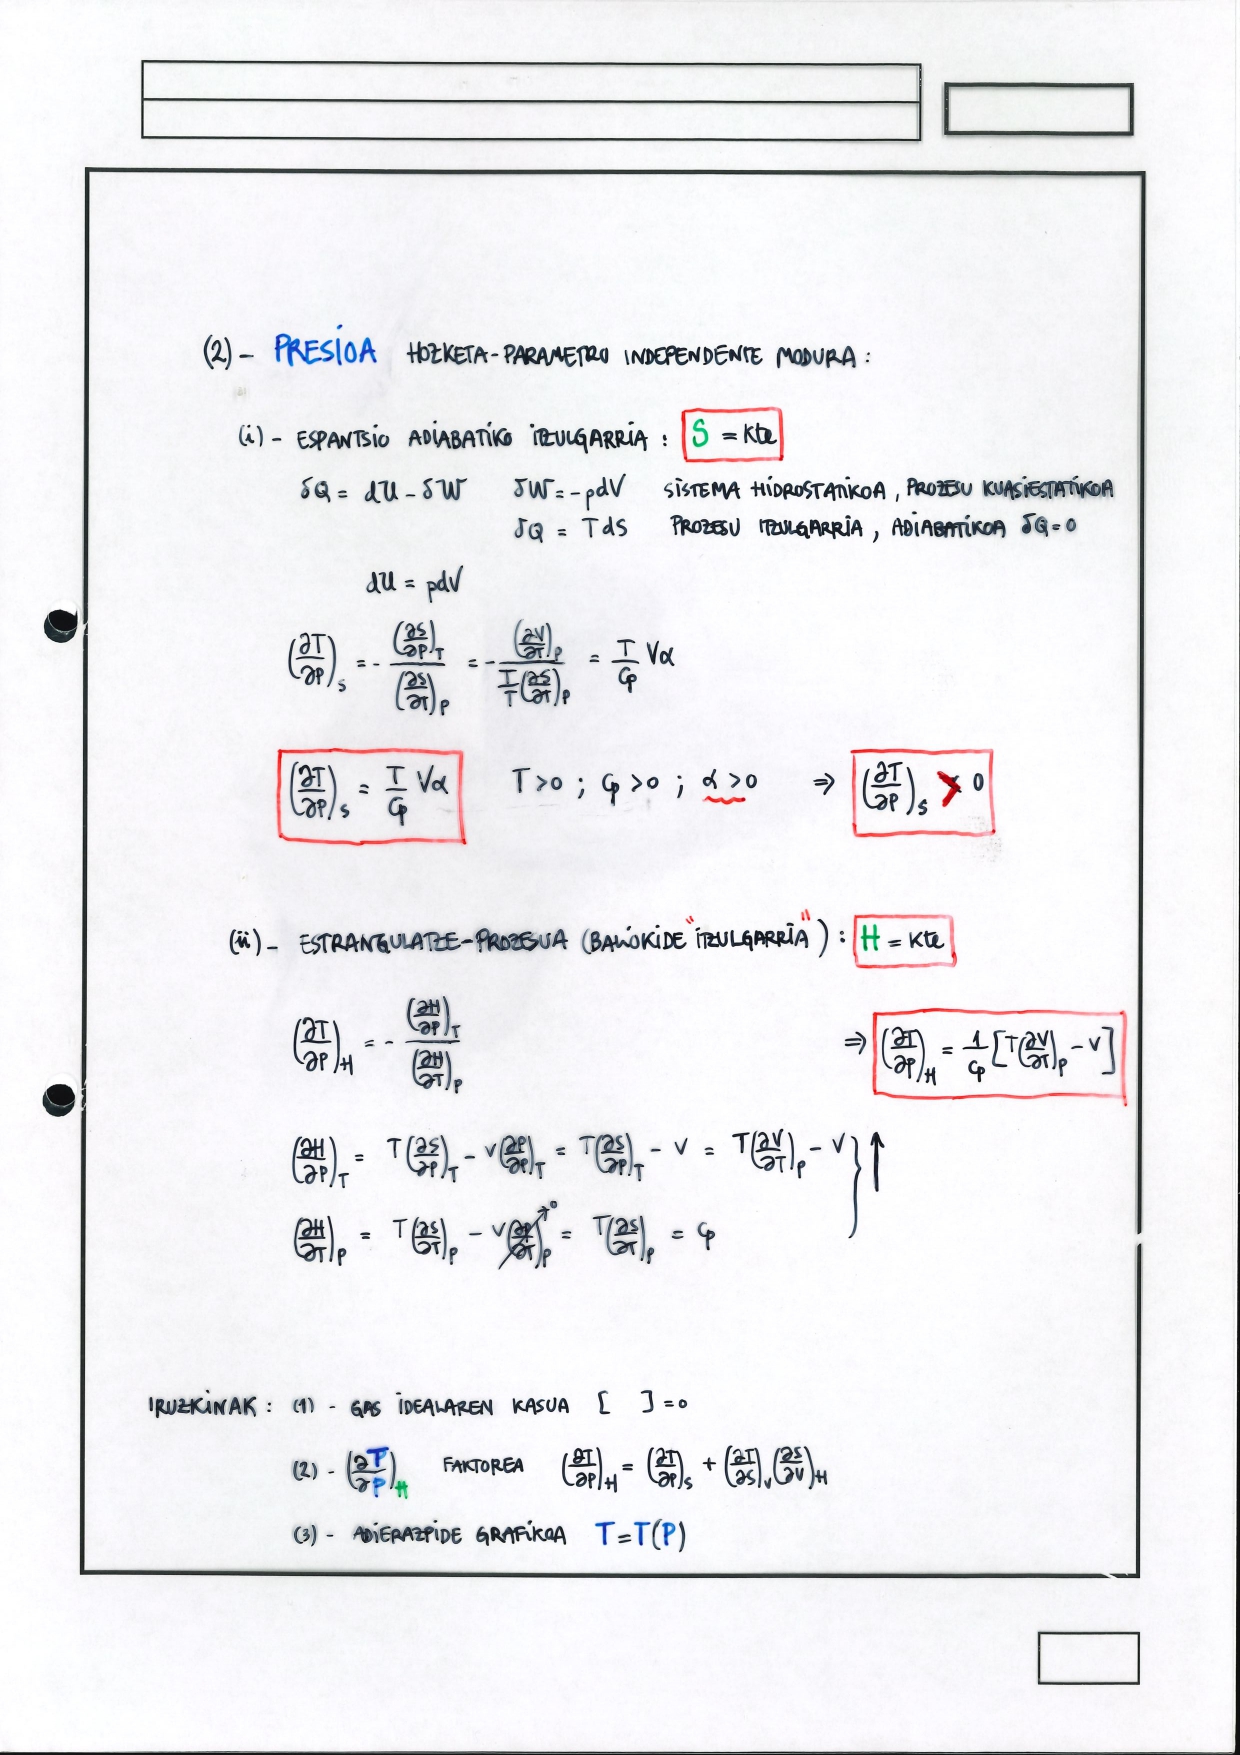 (2) - PRESIOA HOZKETA-PARAMETRO INDEPENDENTE MODURA :
(i) - ESPANTSIO ADIABATIKO ITZULGARRIA : S = Kte
δQ = dU - δW δW = -pdV SISTEMA HIDROSTATIKOA, PROZESU KUASIESTATIKOA
δQ = TdS PROZESU ITZULGARRIA, ADIABATIKOA δQ=0
dU = pdV
(∂T/∂P)_S = - (∂S/∂P)_T / (∂S/∂T)_P = - (∂V/∂T)_P / (T/T (∂S/∂T)_P) = T/Cp Vα
(∂T/∂P)_S = T/Cp Vα T>0 ; Cp>0 ; α>0 ⇒ (∂T/∂P)_S > 0
(ii) - ESTRANGULATZE-PROZESUA (BALIOKIDE "ITZULGARRIA") : H = Kte
(∂T/∂P)_H = - (∂H/∂P)_T / (∂H/∂T)_P ⇒ (∂T/∂P)_H = 1/Cp [T(∂V/∂T)_P - V]
(∂H/∂P)_T = T(∂S/∂P)_T - V(∂P/∂P)_T = T(∂S/∂P)_T - V = T(∂V/∂T)_P - V } ↑
(∂H/∂T)_P = T(∂S/∂T)_P - V(∂P/∂T)_P →0 = T(∂S/∂T)_P = Cp
IRUZKINAK : (1) - GAS IDEALAREN KASUA [ ] = 0
(2) - (∂T/∂P)_H FAKTOREA (∂T/∂P)_H = (∂T/∂P)_S + (∂T/∂S)_V (∂S/∂V)_H
(3) - ADIERAZPIDE GRAFIKOA T = T(P)